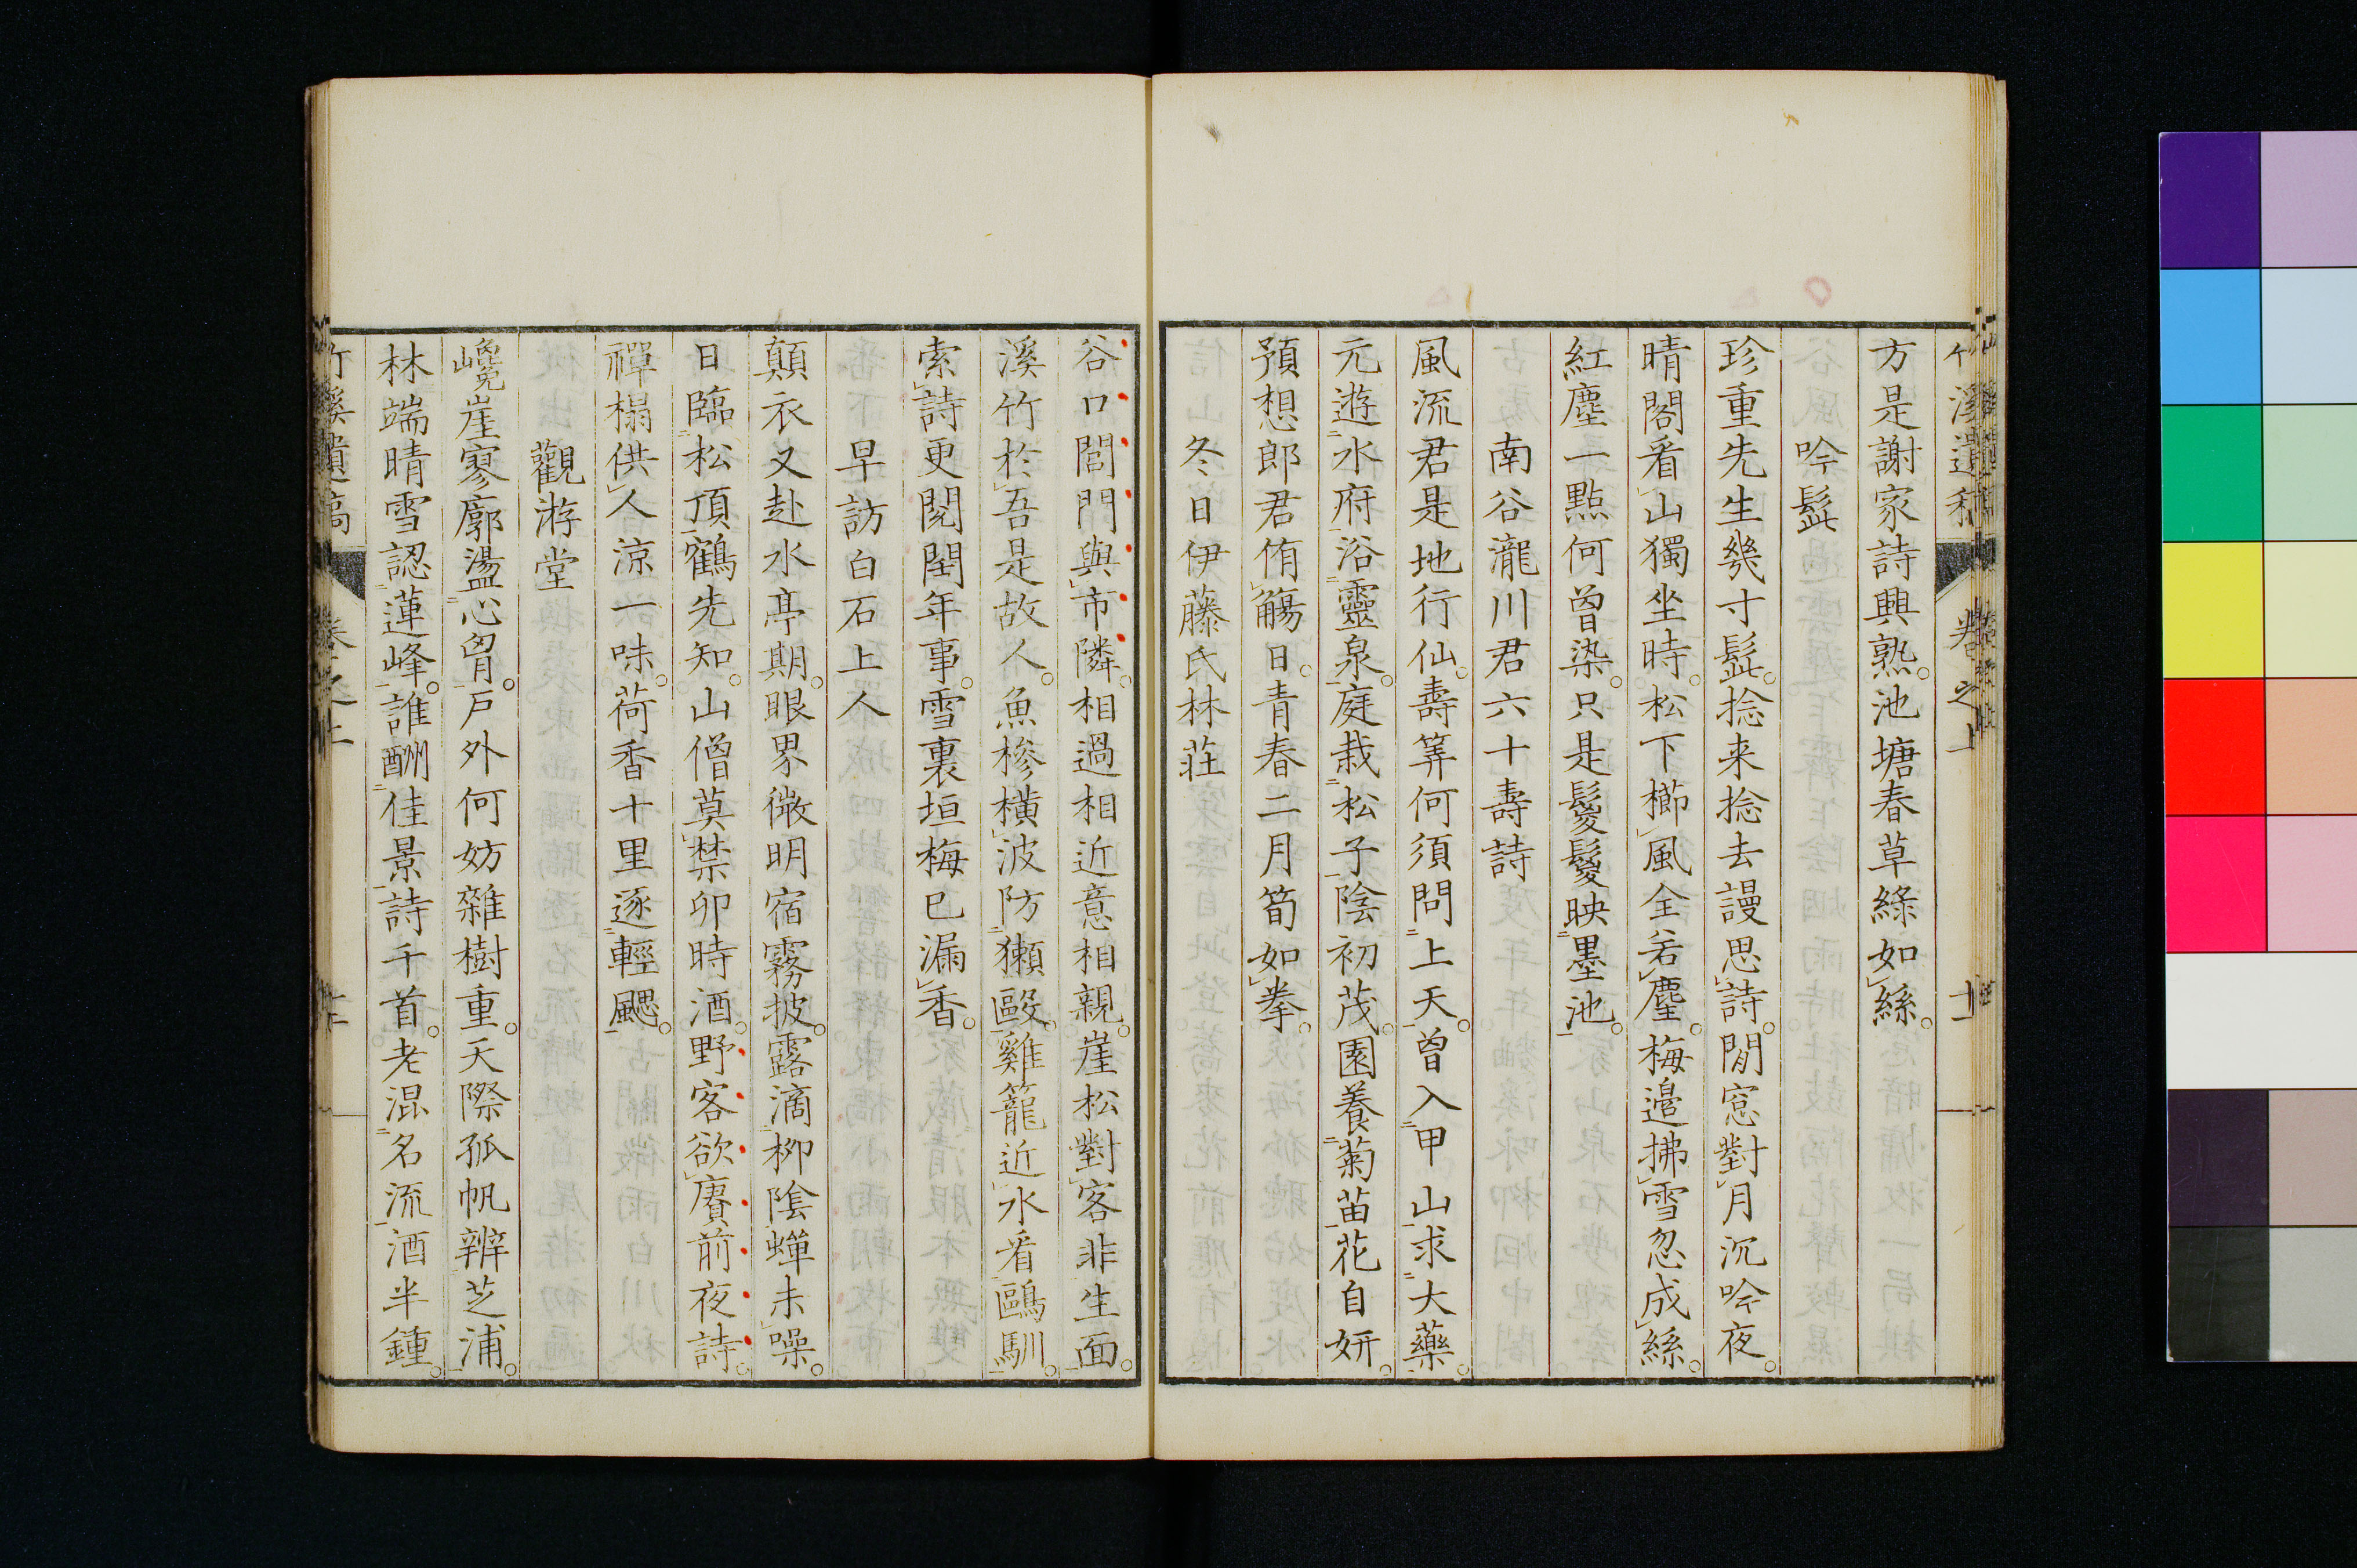 竹溪遺稿 卷之上 十一
方是謝家詩興熟。池塘春草綠如絲。
吟髭
珍重先生幾寸髭。捻来捻去謾思詩。閒窓對月沉吟夜。
晴閣看山獨坐時。松下櫛風全若塵。梅邉拂雪忽成絲。
紅塵一點何曾染。只是鬖鬖映墨池。
南谷瀧川君六十壽詩
風流君是地行仙。壽筭何須問上天。曾入甲山求大藥。
元遊水府浴靈泉。庭栽松子陰初茂。園養菊苗花自妍。
預想郎君侑觴日。青春二月筍如拳。
冬日伊藤氏林荘
谷口閭門與市隣。相過相近意相親。崖松對客非生面。
溪竹於吾是故人。魚槮橫波防獺毆。雞籠近水看鷗馴。
索詩更閱閏年事。雪裏垣梅已漏香。
早訪白石上人
顛衣又赴水亭期。眼界微明宿霧披。露滴柳陰蟬未噪。
日臨松頂鶴先知。山僧莫禁卯時酒。野客欲賡前夜詩。
禪榻供人涼一味。荷香十里逐輕颸。
觀游堂
巉崖寥廓盪心胷。戸外何妨雜樹重。天際孤帆辨芝浦。
林端晴雪認蓮峰。誰酬佳景詩千首。老混名流酒半鍾。
竹溪遺稿 卷之上